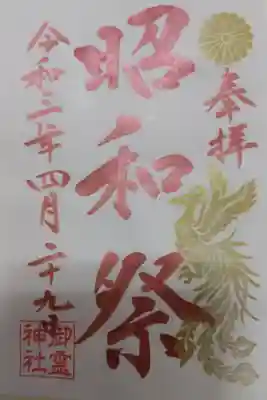 奉拝
昭和祭
令和二年四月二十九日
御霊神社